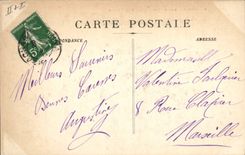 CARTE POSTALE
CORRESPONDANCE
ADRESSE
Meilleurs Souvenirs
Bonnes Caresses
Augustine
Mademoiselle
Valentine
8 Rue Clapier
Marseille
5